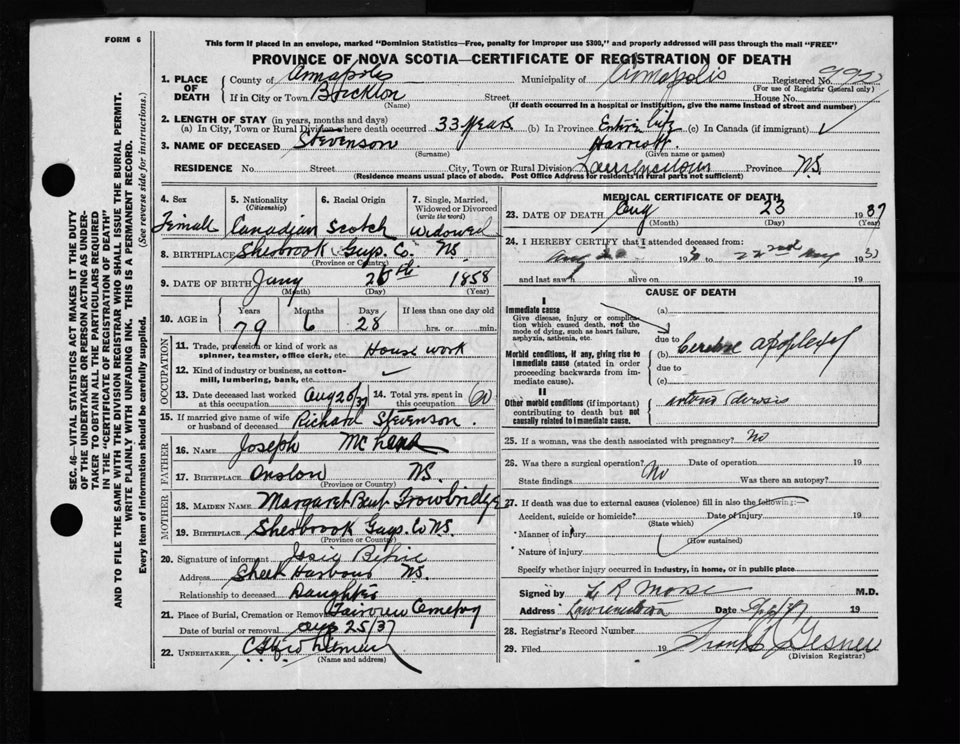 FORM 6
This form if placed in an envelope, marked "Dominion Statistics—Free, penalty for improper use $300," and properly addressed will pass through the mail "FREE"
PROVINCE OF NOVA SCOTIA—CERTIFICATE OF REGISTRATION OF DEATH
1. PLACE OF DEATH County of Annapolis Municipality of Annapolis Registered No. 992
(For use of Registrar General only)
If in City or Town Street House No.
(Name) (If death occurred in a hospital or institution, give the name instead of street and number)
2. LENGTH OF STAY (in years, months and days)
(a) In City, Town or Rural Division where death occurred 33 Years (b) In Province Entire life (c) In Canada (if immigrant) ✓
3. NAME OF DECEASED Stevenson Harriett
(Surname) (Given name or names)
RESIDENCE No. Street City, Town or Rural Division Lawrencetown Province N.S.
(Residence means usual place of abode. Post Office Address for residents in rural parts not sufficient)
4. Sex 5. Nationality (Citizenship) 6. Racial Origin 7. Single, Married, Widowed or Divorced (write the word)
Female Canadian Scotch Widowed
8. BIRTHPLACE Sherbrook Guys. Co. N.S.
(Province or Country)
9. DATE OF BIRTH Jany 25th 1858
(Month) (Day) (Year)
10. AGE in Years Months Days If less than one day
79 6 28 hrs. or min.
OCCUPATION
11. Trade, profession or kind of work as spinner, teamster, office clerk, etc. House work
12. Kind of industry or business, as cotton-mill, lumbering, bank, etc. ✓
13. Date deceased last worked at this occupation Aug 20/37 14. Total yrs. spent in this occupation 60
15. If married give name of wife or husband of deceased Richard Stevenson.
FATHER
16. Name Joseph
17. Birthplace Onslow N.S.
(Province or Country)
MOTHER
18. Maiden Name Margaret Trowbridge
19. Birthplace Sherbrook Guys. Co N.S.
(Province or Country)
20. Signature of informant Josie
Address Sheet Harbour N.S.
Relationship to deceased Daughter
21. Place of Burial, Cremation or Removal Fairview Cemetery
Date of burial or removal Aug 25/37
22. UNDERTAKER
(Name and address)
MEDICAL CERTIFICATE OF DEATH
23. DATE OF DEATH Aug 23 1937
(Month) (Day) (Year)
24. I HEREBY CERTIFY that I attended deceased from:
Aug 20 193 to 22nd Aug 193
and last saw h alive on 19
CAUSE OF DEATH
I
Immediate cause (a)
Give disease, injury or complication which caused death, not the mode of dying, such as heart failure, asphyxia, asthenia, etc. due to
Morbid conditions, if any, giving rise to immediate cause (stated in order proceeding backwards from immediate cause). (b) apoplexy
due to
(c)
II
Other morbid conditions (if important) contributing to death but not causally related to immediate cause.
25. If a woman, was the death associated with pregnancy? No
26. Was there a surgical operation? No Date of operation 19
State findings Was there an autopsy?
27. If death was due to external causes (violence) fill in also the following:—
Accident, suicide or homicide? Date of injury 19
(State which)
Manner of injury
(How sustained)
Nature of injury
Specify whether injury occurred in industry, in home, or in public place
Signed by L R Morse M.D.
Address Lawrencetown Date 19
28. Registrar's Record Number
29. Filed 19 Frank Gesner
(Division Registrar)
SEC. 46—VITAL STATISTICS ACT MAKES IT THE DUTY
OF THE UNDERTAKER OR PERSON ACTING AS UNDER-
TAKER TO OBTAIN ALL THE PARTICULARS REQUIRED
IN THE "CERTIFICATE OF REGISTRATION OF DEATH"
AND TO FILE THE SAME WITH THE DIVISION REGISTRAR WHO SHALL ISSUE THE BURIAL PERMIT.
WRITE PLAINLY WITH UNFADING INK. THIS IS A PERMANENT RECORD.
Every item of information should be carefully supplied. (See reverse side for instructions.)